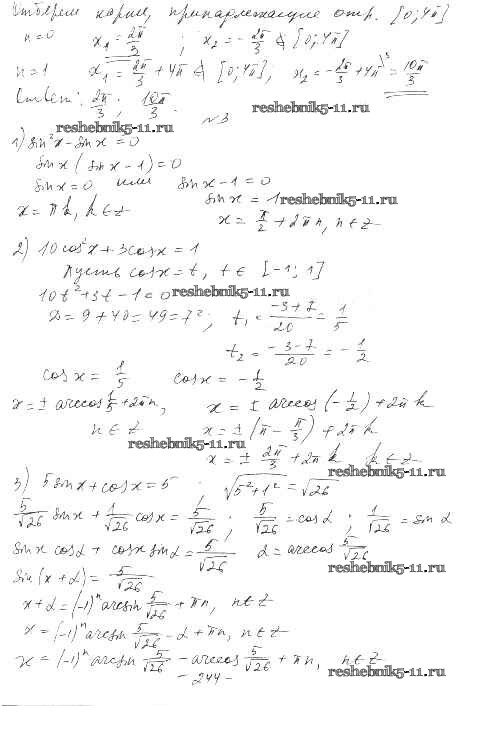 Отберем корни, принадлежащие отр. [0; 4π]
n=0 x₁ = 2π/3 ; x₂ = -2π/3 ∉ [0; 4π]
n=1 x₁ = 2π/3 + 4π ∉ [0; 4π], x₂ = -2π/3 + 4π = 10π/3
Ответ: 2π/3 ; 10π/3.
reshebnik5-11.ru
№3
reshebnik5-11.ru
1) sin²x - sinx = 0
sinx (sinx - 1) = 0
sinx = 0 или sinx - 1 = 0
sinx = 1
reshebnik5-11.ru
x = πk, k ∈ Z x = π/2 + 2πn, n ∈ Z
2) 10cos²x + 3cosx = 1
Пусть cosx = t, t ∈ [-1; 1]
10t² + 3t - 1 = 0
reshebnik5-11.ru
D = 9 + 40 = 49 = 7²; t₁ = (-3+7)/20 = 1/5
t₂ = (-3-7)/20 = -1/2
cosx = 1/5 cosx = -1/2
x = ± arccos 1/5 + 2πn, x = ± arccos(-1/2) + 2πk
n ∈ Z x = ± (π - π/3) + 2πk
reshebnik5-11.ru
x = ± 2π/3 + 2πk k ∈ Z
reshebnik5-11.ru
3) 5sinx + cosx = 5 √(5²+1²) = √26
5/√26 sinx + 1/√26 cosx = 5/√26 ; 5/√26 = cosα ; 1/√26 = sinα
sinx cosα + cosx sinα = 5/√26 α = arccos 5/√26
reshebnik5-11.ru
sin(x + α) = 5/√26
x + α = (-1)ⁿ arcsin 5/√26 + πn, n ∈ Z
x = (-1)ⁿ arcsin 5/√26 - α + πn, n ∈ Z
x = (-1)ⁿ arcsin 5/√26 - arccos 5/√26 + πn, n ∈ Z
reshebnik5-11.ru
- 244 -